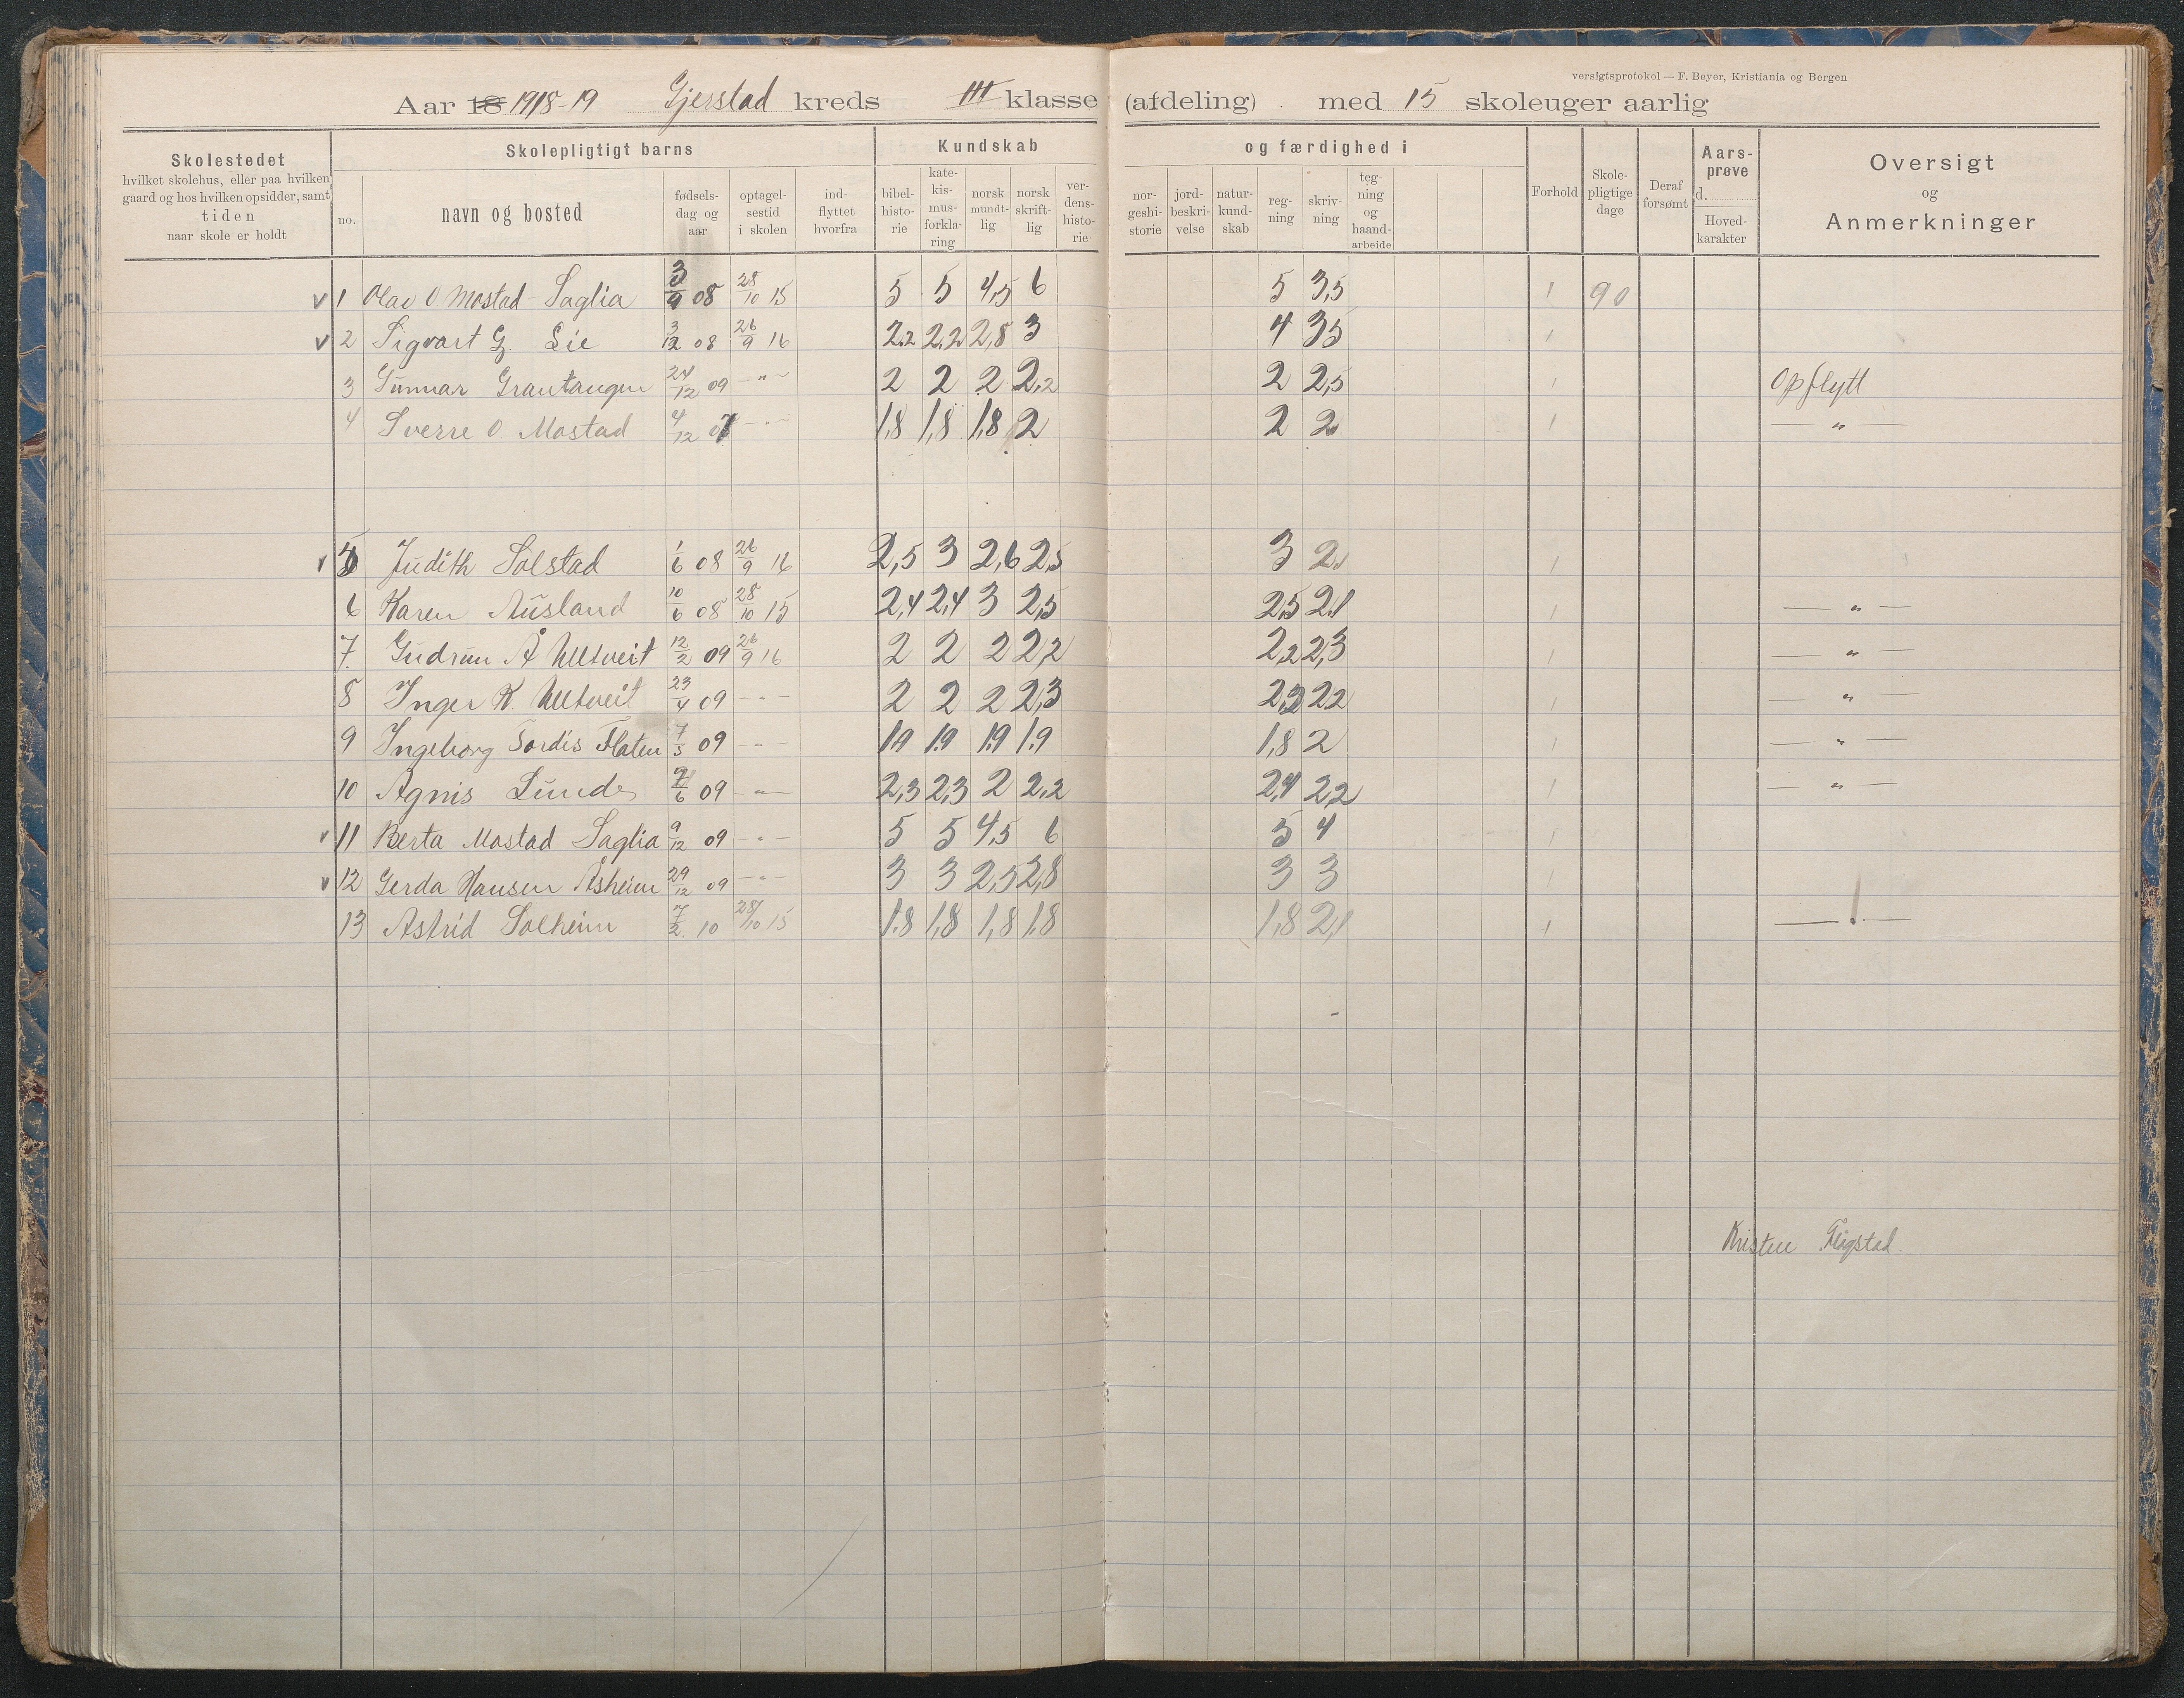 versigtsprotokol — F. Beyer, Kristiania og Bergen
Aar 18 1918-19 Gjerstad kreds III klasse (afdeling) med 15 skoleuger aarlig
Skolestedet
hvilket skolehus, eller paa hvilken
gaard og hos hvilken opsidder, samt
tiden
naar skole er holdt
Skolepligtigt barns
no.
navn og bosted
fødsels-
dag og
aar
optagel-
sestid
i skolen
ind-
flyttet
hvorfra
Kundskab
bibel-
histo-
rie
kate-
kis-
mus-
forkla-
ring
norsk
mundt-
lig
norsk
skrift-
lig
ver-
dens-
histo-
rie
og færdighed i
nor-
geshi-
storie
jord-
beskri-
velse
natur-
kund-
skab
reg-
ning
skriv-
ning
teg-
ning
og
haand-
arbeide
Forhold
Skole-
pligtige
dage
Deraf
forsømt
Aars-
prøve
d.
Hoved-
karakter
Oversigt
og
Anmerkninger
v 1 Olav O Mostad Saglia 3/9 08 28/10 15 5 5 4,5 6 5 3,5 1 90
v 2 Sigvart G Lie 3/12 08 26/9 16 2.2 2,2 2,8 3 4 35 1
3 Gunnar Grantangen 24/12 09 — " — 2 2 2 2,2 2 2,5 1 Opflytt
4 Sverre O Mostad 4/12 07 — " — 1,8 1,8 1,8 2 2 2 1 — " —
v 5 Judith Solstad 1/6 08 26/9 16 2,5 3 2,6 2,5 3 2 1
6 Karen Ausland 10/6 08 28/10 15 2,4 2,4 3 2,5 2,5 2,1 1 — " —
7. Gudrun Å Ulltveit 12/2 09 26/9 16 2 2 2 2,2 2,2 2,3 1 — " —
8 Inger K. Ulltveit 23/4 09 — " — 2 2 2 2,3 2,2 2,2 1 — " —
9 Ingeborg Tordis Flaten 7/5 09 — " — 1.9 1.9 1.9 1.9 1,8 2 1 — " —
10 Agnis Lunde 7/6 09 — " — 2,3 2,3 2 2,2 2,4 2,2 1 — " —
v 11 Berta Mostad Saglia 9/12 09 — " — 5 5 4,5 6 5 4 1
v 12 Gerda Hansen Åsheim 29/12 09 — " — 3 3 2,5 2,8 3 3 1
13 Astrid Solheim 7/2. 10 28/10 15 1.8 1,8 1,8 1.8 1,8 2,1 1 — ! —
Kristen